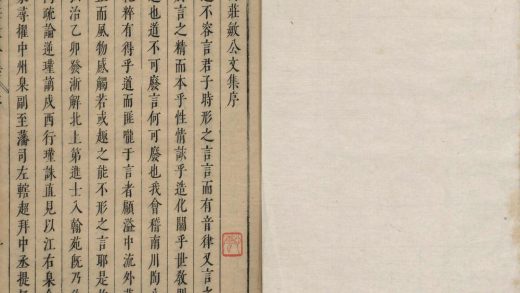 莊敏公文集序
道不容言君子時形之言言而有音律又言之
言之精而本乎性情詠乎造化關乎世教則
也道不可廢言何可廢也我會稽南川陶
粹有得乎道而匯嚨于言者顧溢中流外
而風物感觸若或趣之能不形之言耶是
治乙卯發浙解北上第進士入翰苑既乃
疏論逆瑾謫戍西行瑾誅直見以江右臬
尋擢中州臬副至藩司左轄超拜中丞提